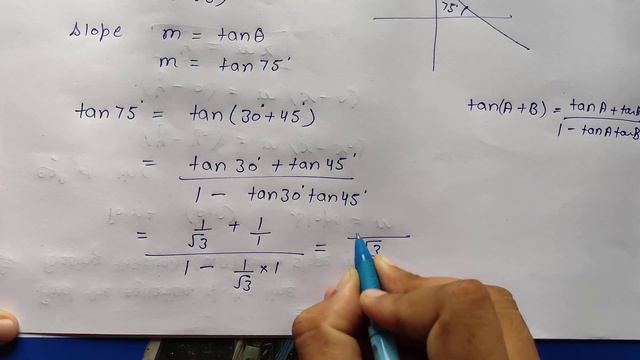 75°
Slope m = tanθ
m = tan 75°
tan 75° = tan(30°+45°)
tan(A+B) = tanA + tanB / 1 - tanA tanB
= tan 30° + tan 45° / 1 - tan30° tan45°
= 1/√3 + 1/1 / 1 - 1/√3 × 1 = √3